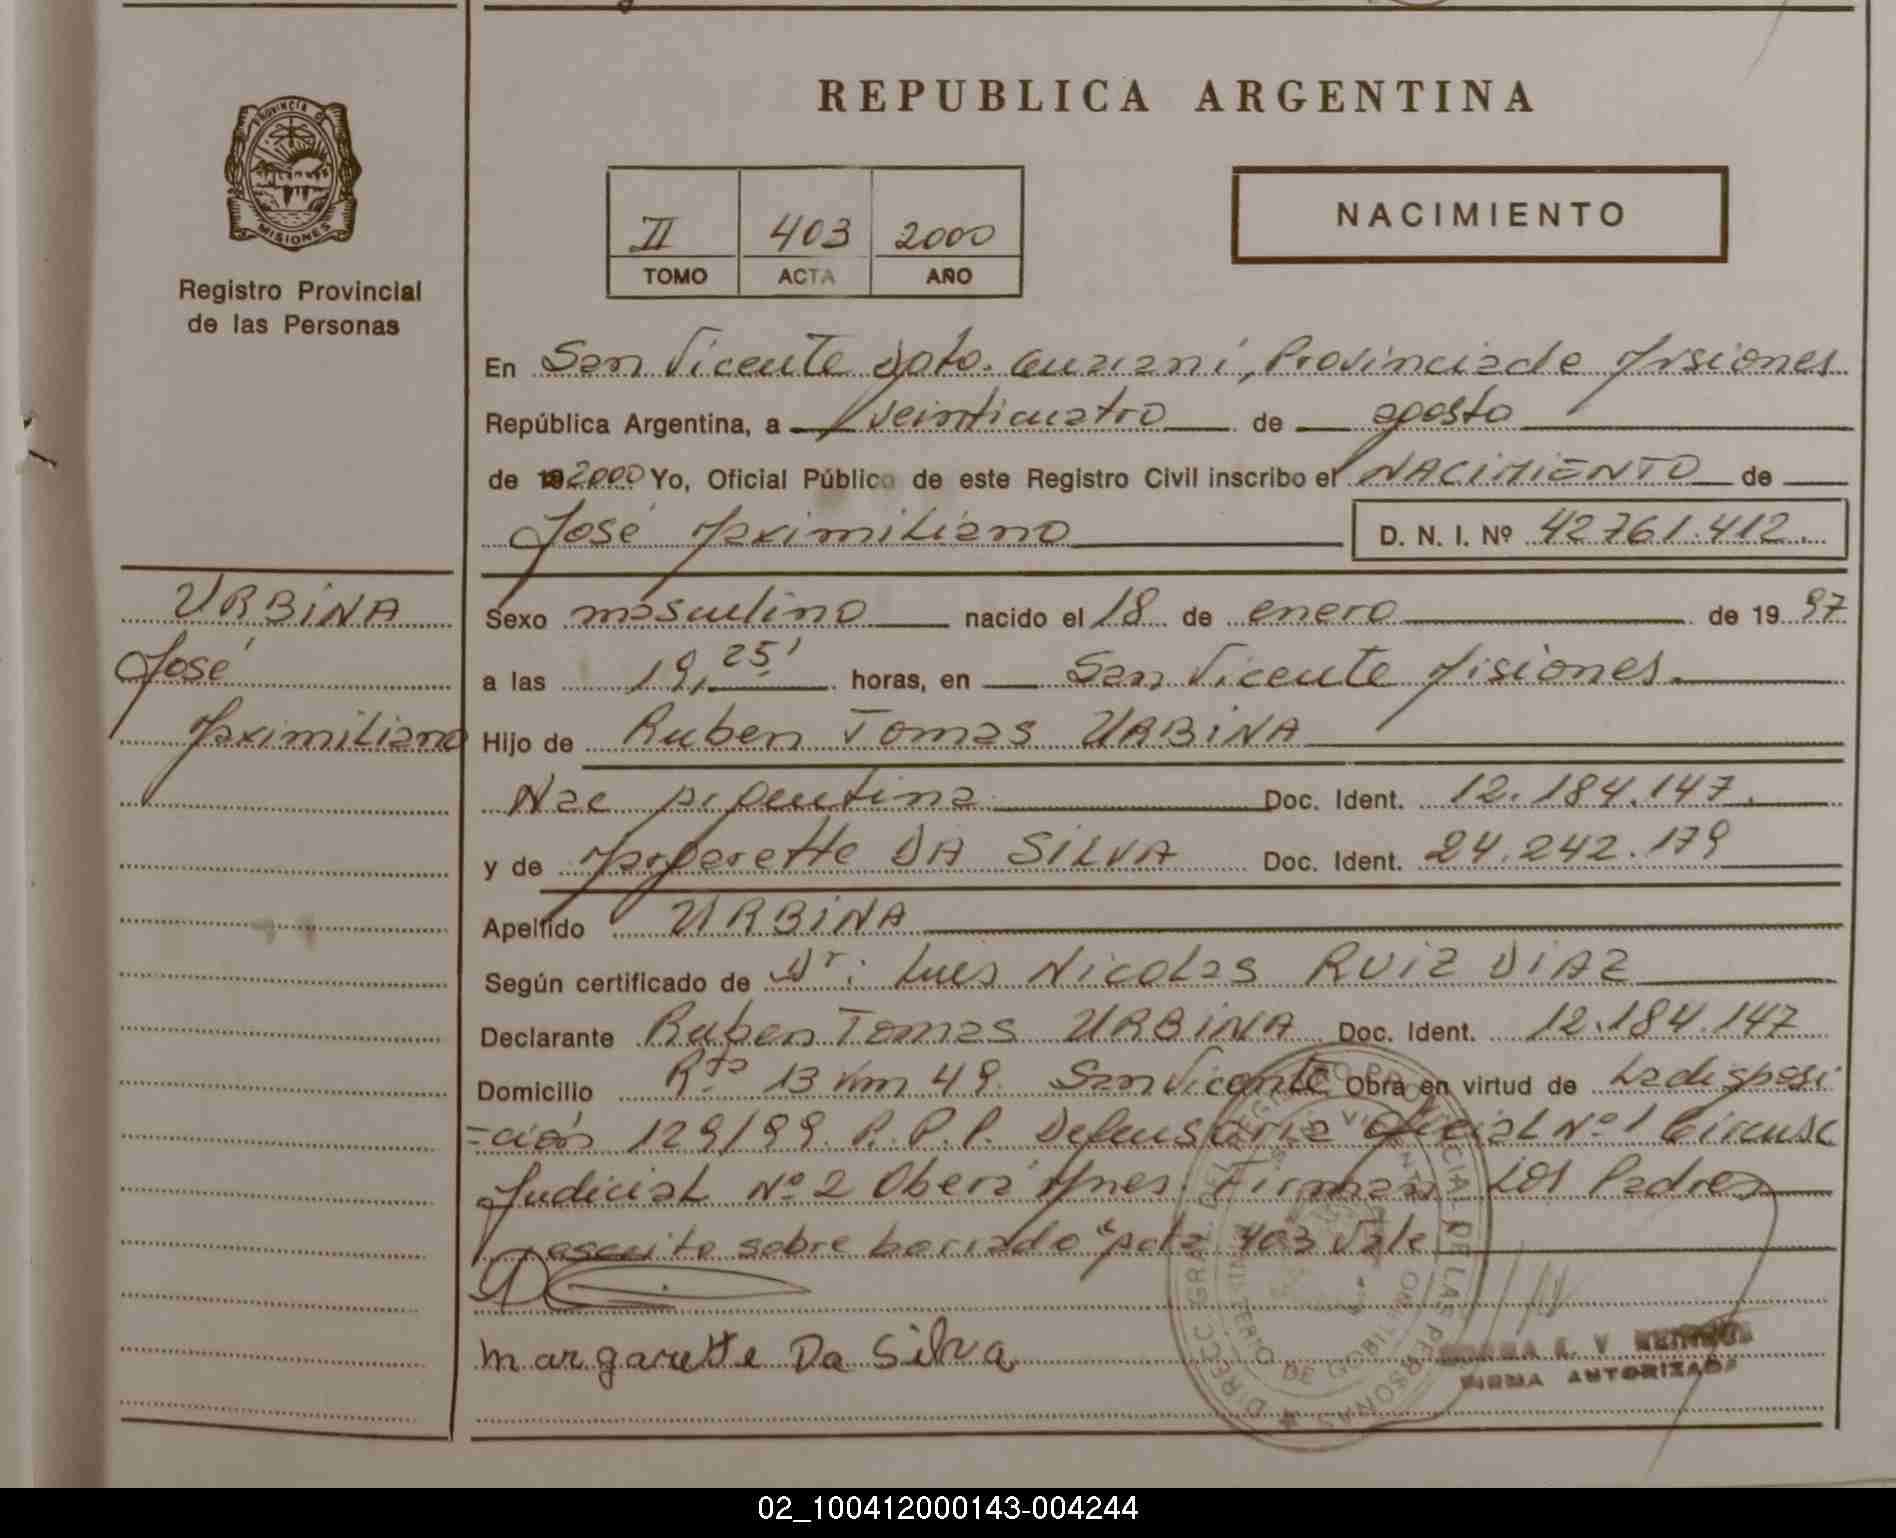 REPUBLICA ARGENTINA
PROVINCIA DE
MISIONES
Registro Provincial
de las Personas
II 403 2000
TOMO ACTA AÑO
NACIMIENTO
En San Vicente Dpto. Guaraní, Provincia de Misiones
República Argentina, a veinticuatro de agosto
de 19 2000 Yo, Oficial Público de este Registro Civil inscribo el NACIMIENTO de
José Maximiliano D. N. I. Nº 42761.412.
URBINA
José
Maximiliano
Sexo masculino nacido el 18 de enero de 19 97
a las 19,25' horas, en San Vicente Misiones.
Hijo de Ruben Tomas URBINA
Nac Argentina Doc. Ident. 12.184.147.
y de Margarette DA SILVA Doc. Ident. 24.242.179
Apellido URBINA
Según certificado de Dr: Luis Nicolas RUIZ DIAZ
Declarante Ruben Tomas URBINA Doc. Ident. 12.184.147
Domicilio Rta 13 Km 49. San Vicente Obra en virtud de La disposi
=ción 129/99. R.P.P. Defensoria Oficial Nº 1 Circusc
Judicial Nº 2 Obera Mnes. Firman Los Padres
escrito sobre borrado "Acta 403 Vale
Margarette Da Silva
DIRECC. GRAL. DEL REGISTRO PROVINCIAL DE LAS PERSONAS
MINISTERIO DE GOBIERNO
SAN VICENTE
E. V.
FIRMA AUTORIZADA
02_100412000143-004244